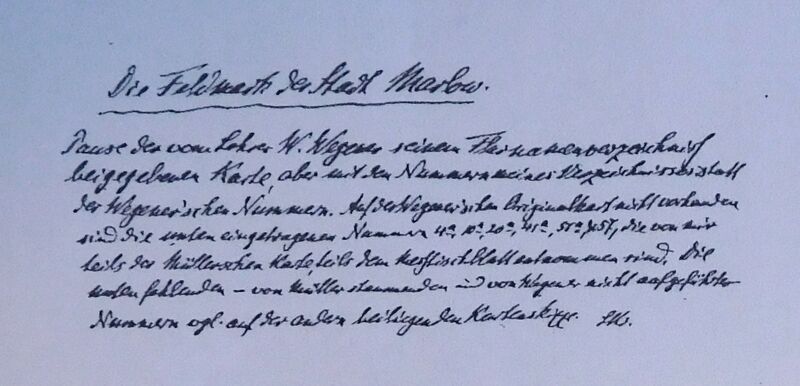 Die Feldmark der Stadt Marlow.
Pause der vom Lehrer W. Wegener seinem Flurnamenverzeichnis
beigegebenen Karte, aber mit den Nummern meines Verzeichnisses statt
der Wegener'schen Nummern. Auf der Wegener'schen Originalkarte nicht vorhanden
sind die unten eingetragenen Nummern 4a, 10a, 20a, 41a, 51a, die von mir
teils der Müllerschen Karte, teils dem Messtischblatt entnommen sind. Die
unten fehlenden – von Müller stammenden und von Wegener nicht aufgeführten
Nummern vgl. auf der andern beiliegenden Kartenskizze.